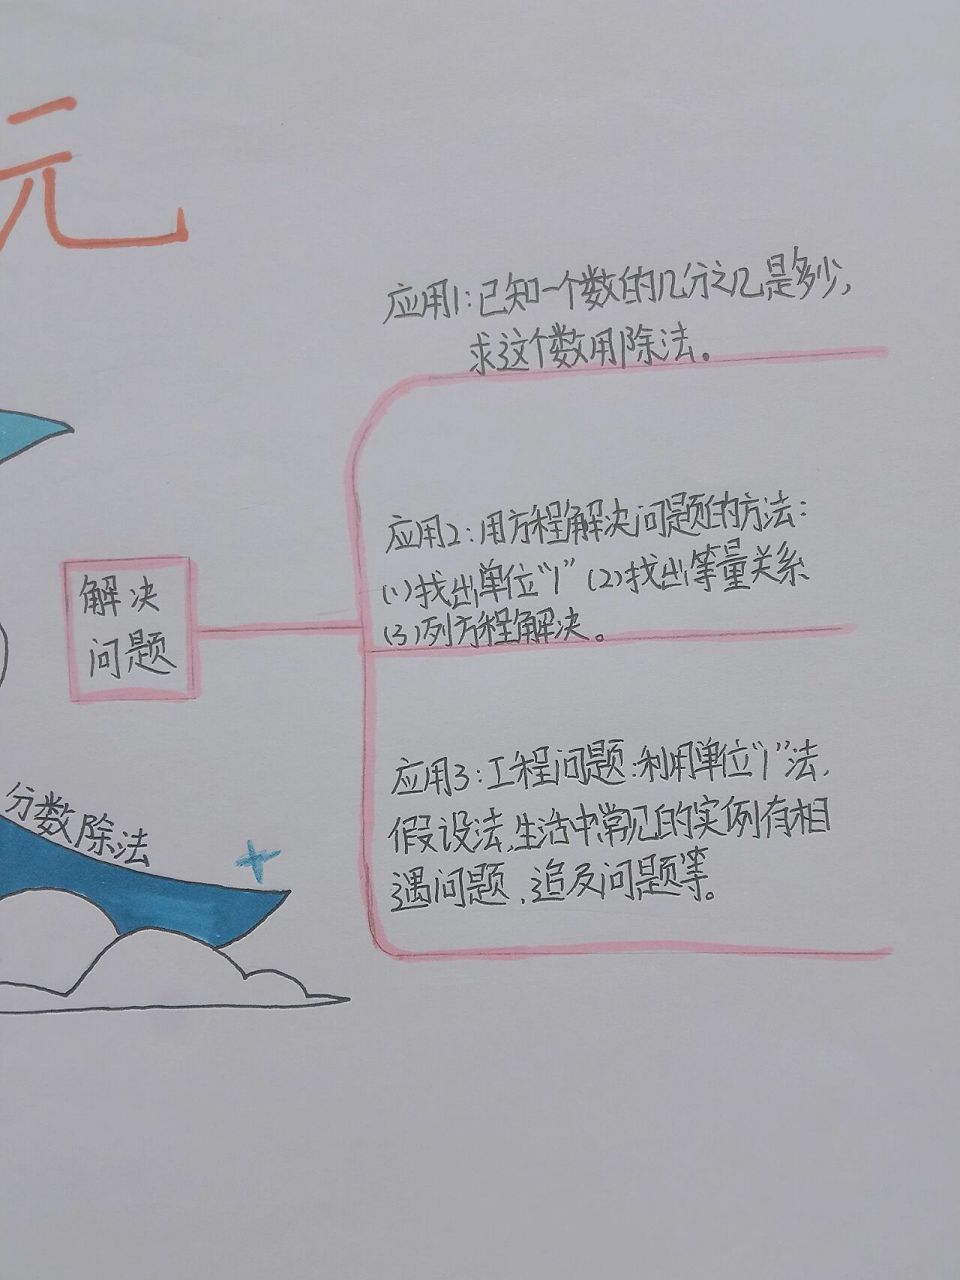 元
应用1:已知一个数的几分之几是多少,
求这个数用除法。
解决
问题
应用2:用方程解决问题的方法:
(1)找出单位“1” (2)找出等量关系
(3)列方程解决。
应用3:工程问题:利用单位“1”法,
假设法,生活中常见的实例有相
遇问题、追及问题等。
分数除法